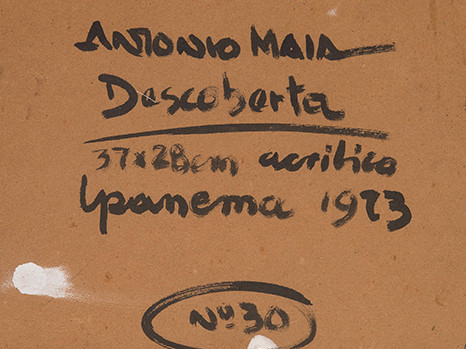 ANTONIO MAIA
Descoberta
37x28cm acrilico
Ipanema 1973
Nº 30